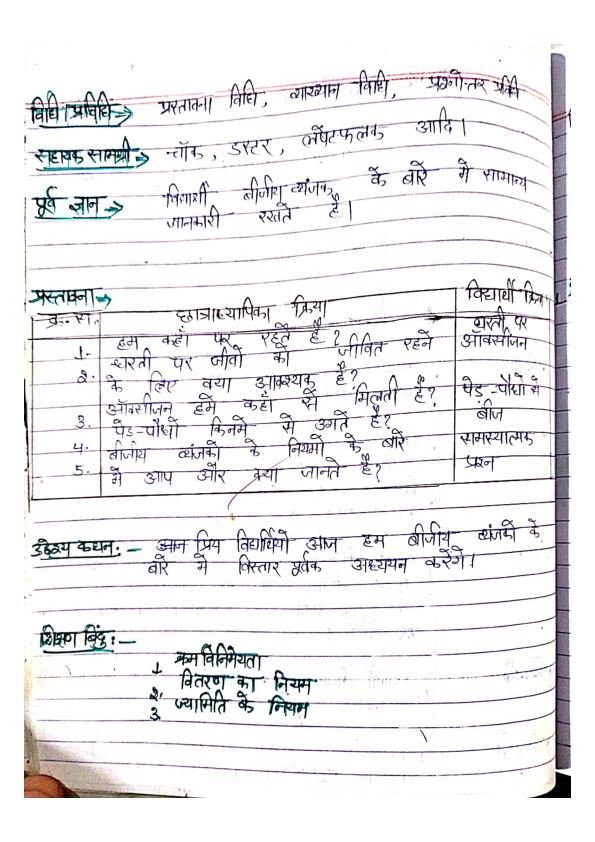 विधि/प्रविधि→ प्रस्तावना विधि, व्याख्यान विधि, प्रश्नोत्तर
सहायक सामग्री → चॉक, डस्टर, लपेटफलक आदि।
पूर्व ज्ञान → विद्यार्थी बीजीय व्यंजक के बारे में सामान्य
जानकारी रखते है।
प्रस्तावना→
क्र.स. छात्राध्यापिका क्रिया विद्यार्थी क्रिया
1. हम कहाँ पर रहते है? धरती पर
2. धरती पर जीवो को जीवित रहने ऑक्सीजन
के लिए क्या आवश्यक है?
3. ऑक्सीजन हमें कहाँ से मिलती है? पेड़-पौधों से
4. पेड़-पौधों किनमे से उगते है? बीज
5. बीजीय व्यंजको के नियमों के बारे समस्यात्मक
में आप और क्या जानते है? प्रश्न
उद्देश्य कथन:- आज प्रिय विद्यार्थियों आज हम बीजीय व्यंजको के
बारे में विस्तार पूर्वक अध्ययन करेंगे।
शिक्षण बिंदु:-
1. क्रमविनिमेयता
2. वितरण का नियम
3. ज्यामिति के नियम